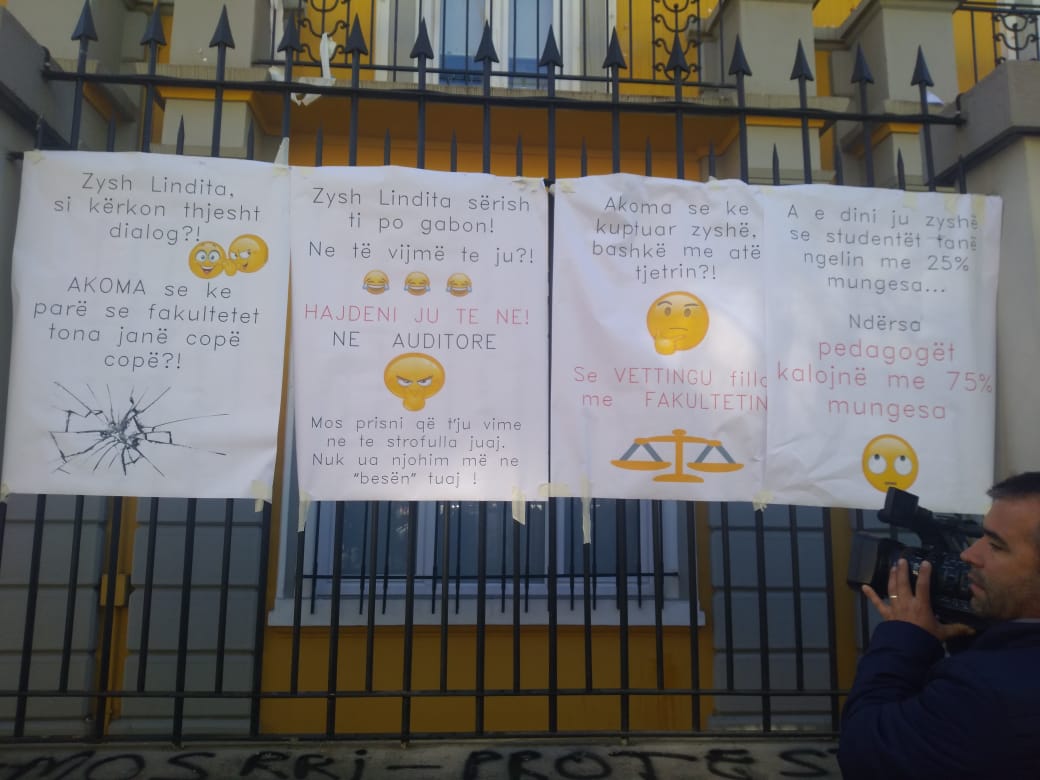 Zysh Lindita,
si kërkon thjesht
dialog?!
AKOMA se ke
parë se fakultetet
tona janë copë
copë?!
Zysh Lindita sërish
ti po gabon!
Ne të vijmë te ju?!
HAJDENI JU TE NE!
NE AUDITORE
Mos prisni që t'ju vime
ne te strofulla juaj.
Nuk ua njohim më ne
"besën" tuaj !
Akoma se ke
kuptuar zyshë,
bashkë me atë
tjetrin?!
Se VETTINGU fillo
me FAKULTETIN
A e dini ju zyshë
se studentët tanë
ngelin me 25%
mungesa...
Ndërsa
pedagogët
kalojnë me 75%
mungesa
MOS RRI - PROTES